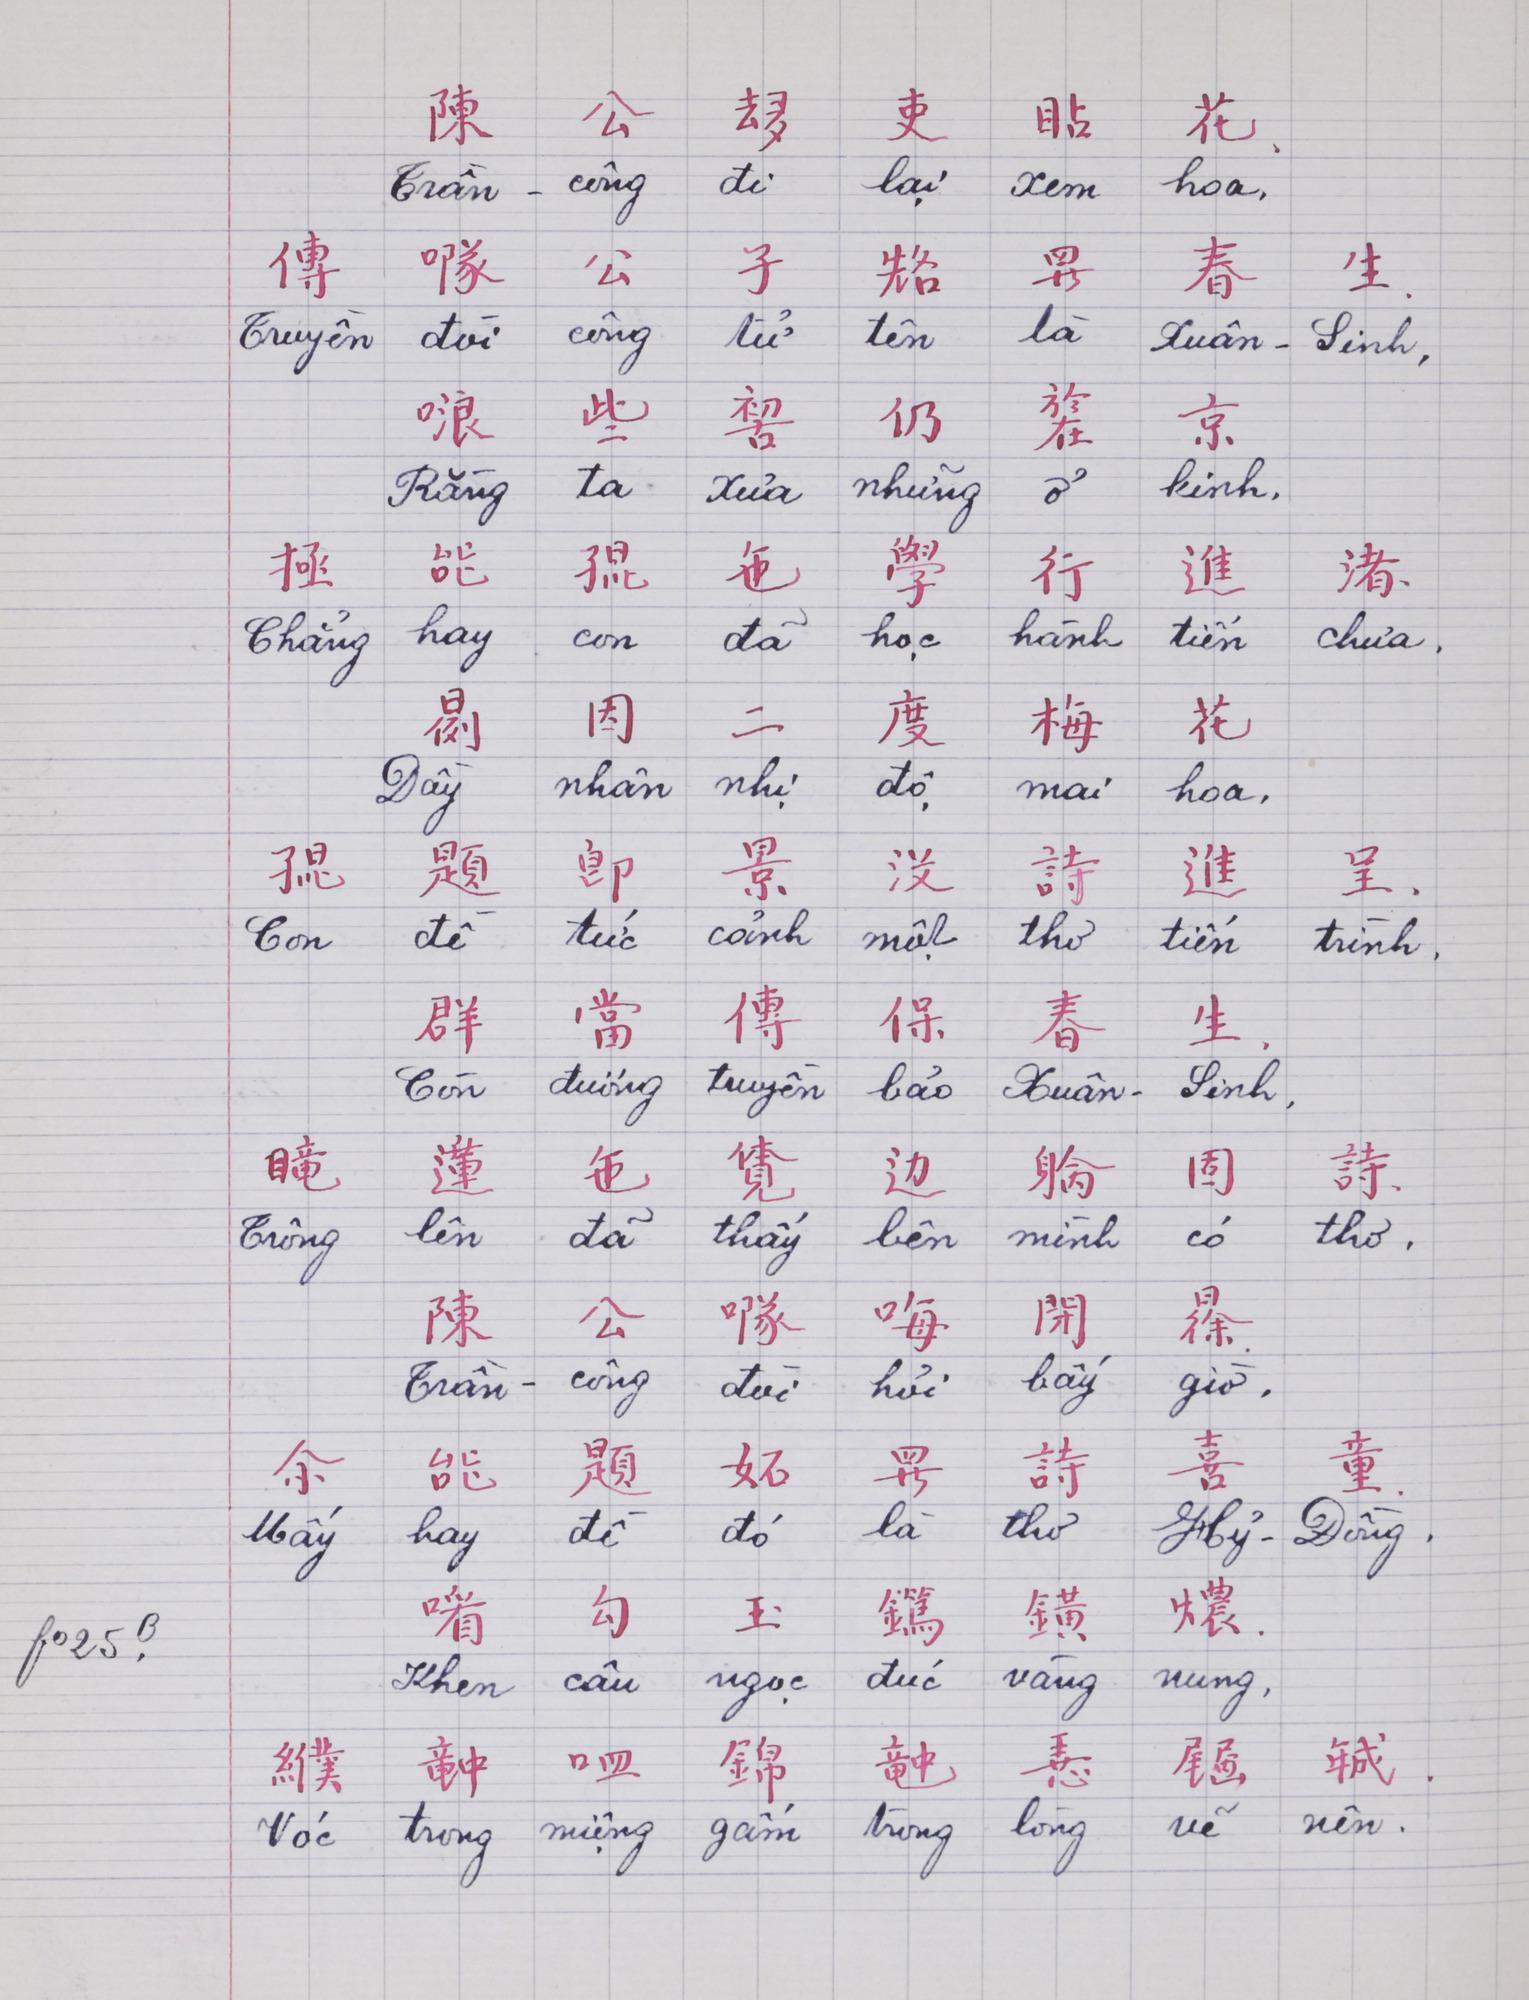 陳 公 𠫾 吏 䀡 花.
Trần - công đi lại xem hoa.
傳 㗂 公 子 𠸜 羅 春 生.
Truyền đòi công tử tên là Xuân - Sinh,
哴 些 𠸗 仍 於 京
Rằng ta xưa những ở kinh.
極 能 昆 㐌 學 行 進 渚.
Chẳng hay con đã học hành tiến chưa.
因 二 度 梅 花
Dầy nhân nhị độ mai hoa.
題 即 景 没 詩 進 呈.
Con đề tức cảnh một thơ tiến trình.
群 當 傳 保 春 生.
Còn đương truyền bảo Xuân - Sinh,
蓮 㐌 覽 边 躺 固 詩.
Trông lên đã thấy bên mình có thơ.
陳 公 㗂 晦 閉 𣇞.
Trần - công đòi hỏi bấy giờ.
尒 能 題 妬 羅 詩 喜 童.
Mấy hay đề đó là thơ Hỷ - Đồng.
勾 玉 鐫 鐄 燶.
Khen câu ngọc đúc vàng nung,
纀 𥪝 𠰘 錦 𥪝 𢚸 𡲈 𢧚.
Vóc trong miệng gấm trong lòng vẽ nên.
fo 25 B.